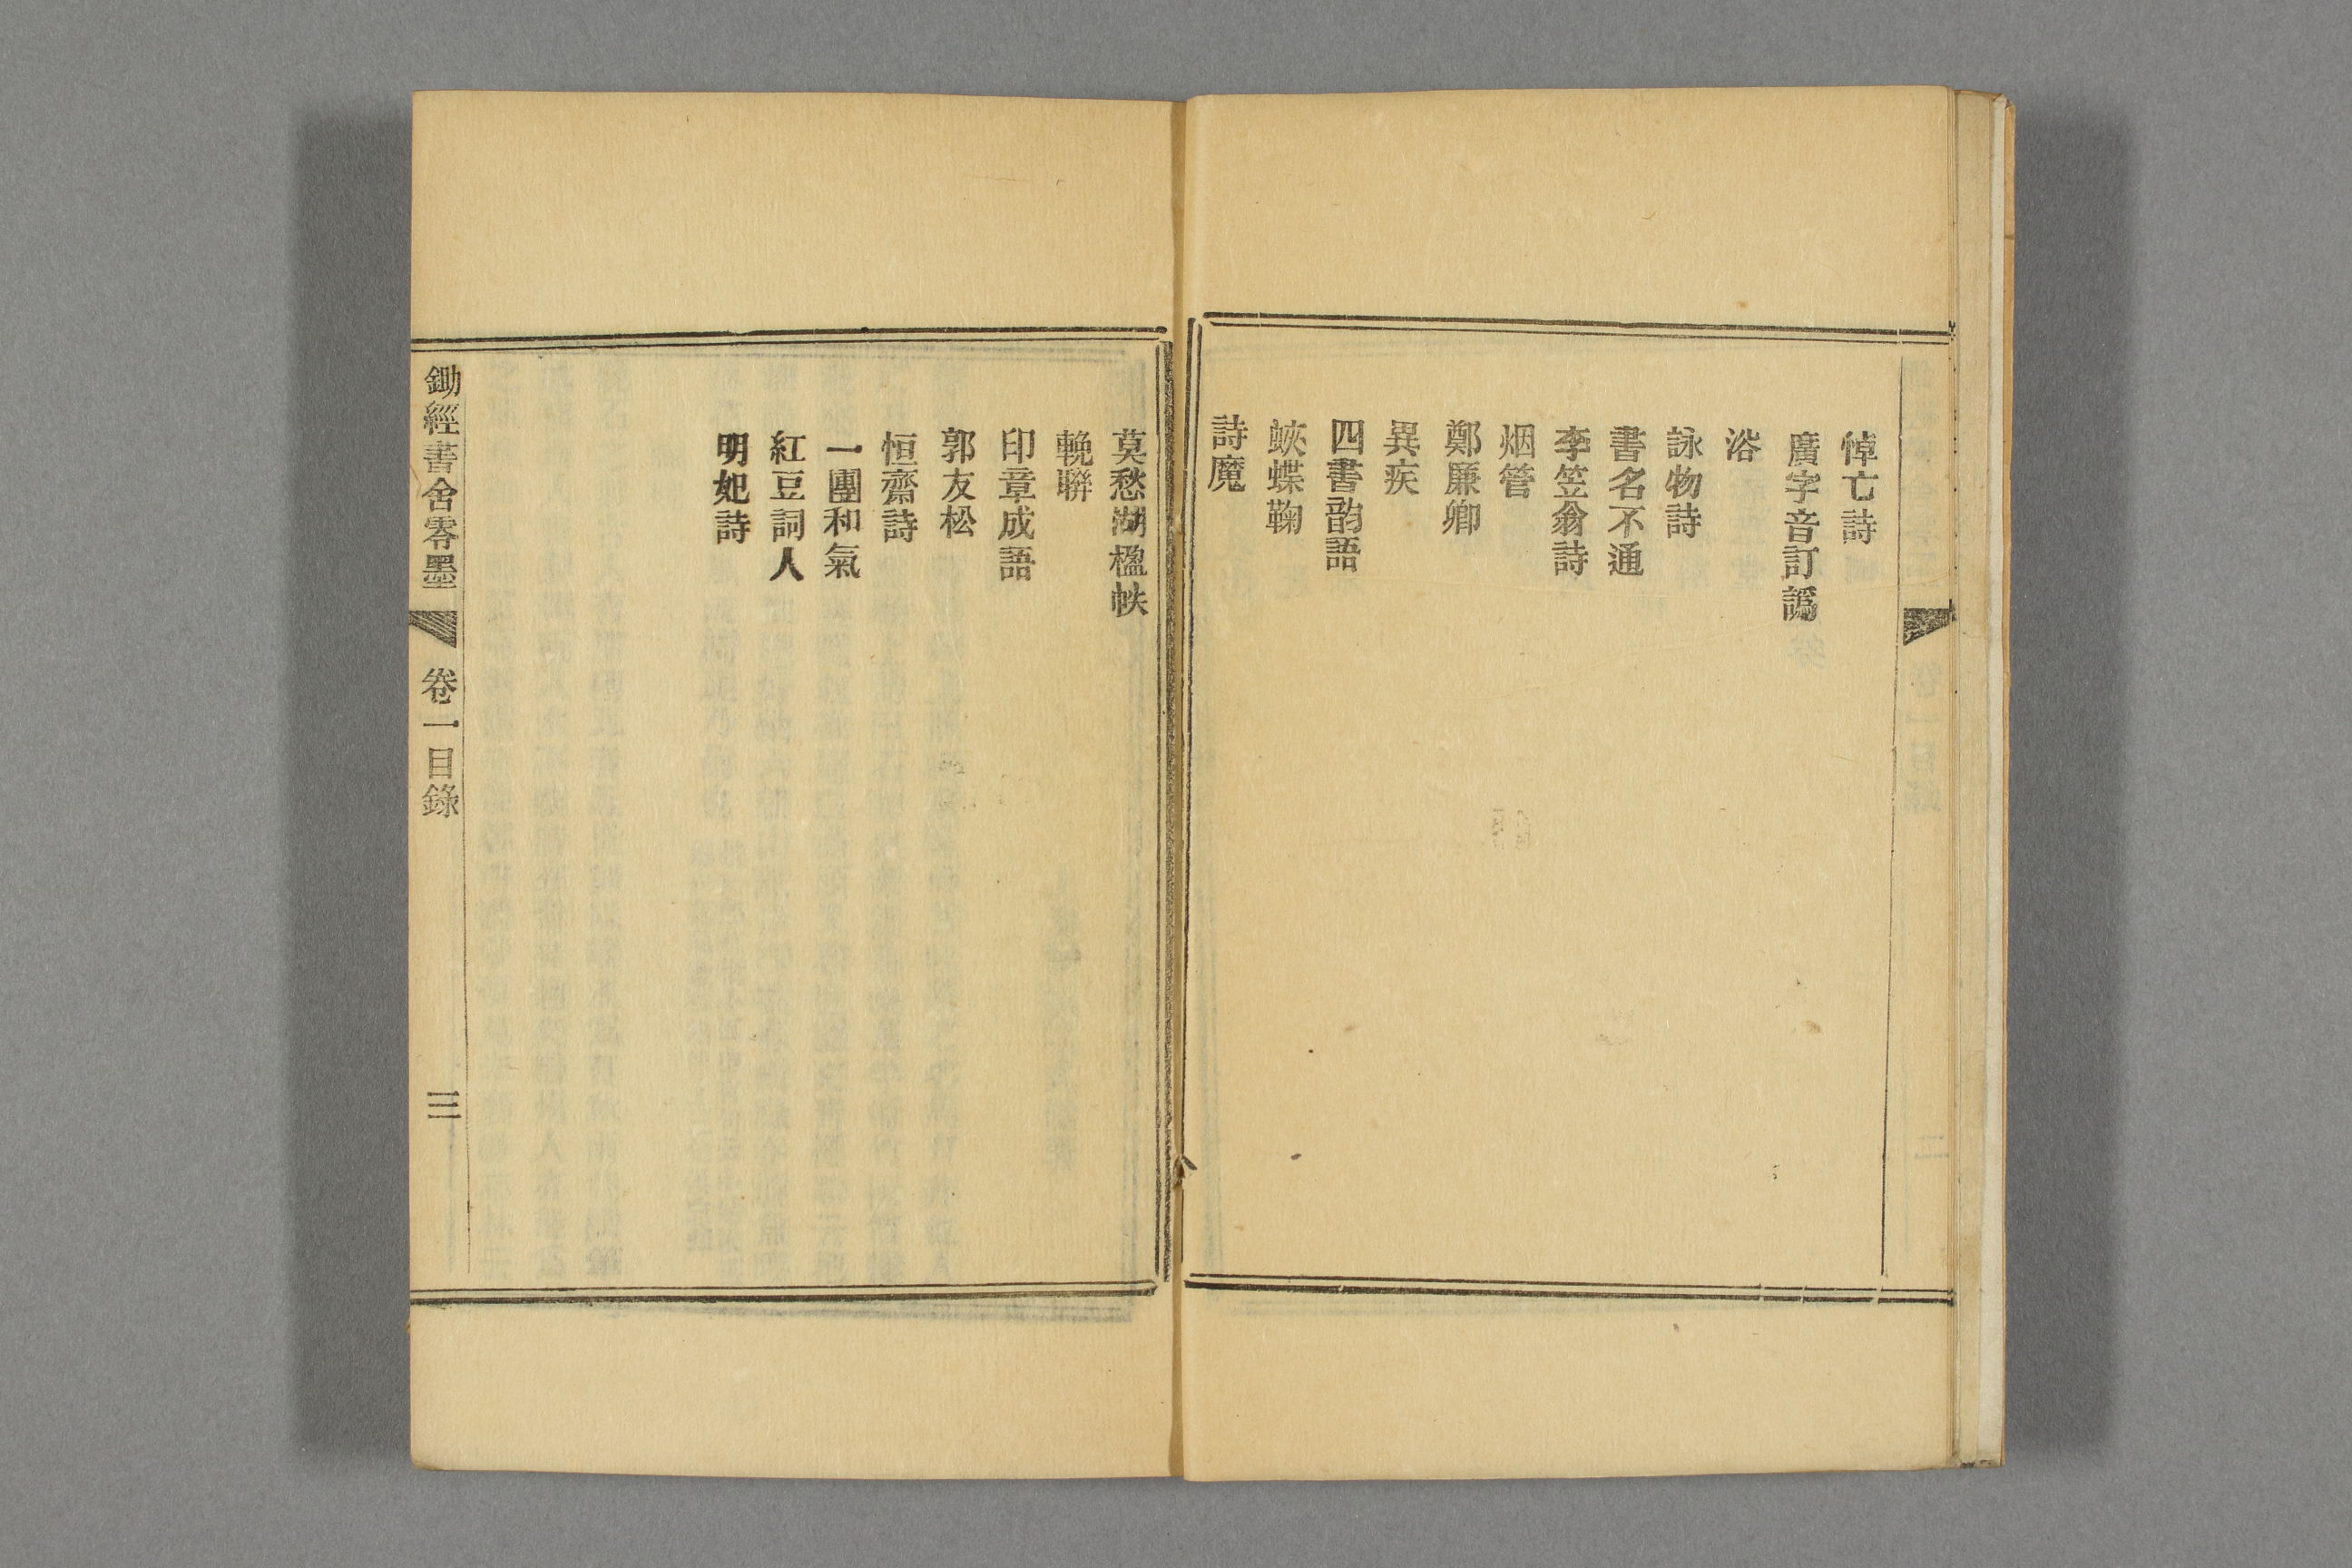 悼亡詩
廣字音訂譌
浴
詠物詩
書名不通
李笠翁詩
烟管
鄭廉卿
異疾
四書韵語
蛺蝶鞠
詩魔
莫愁湖楹帖
輓聯
印章成語
郭友松
恒齋詩
一團和氣
紅豆詞人
明妃詩
鋤經書舍零墨 卷一目錄 三